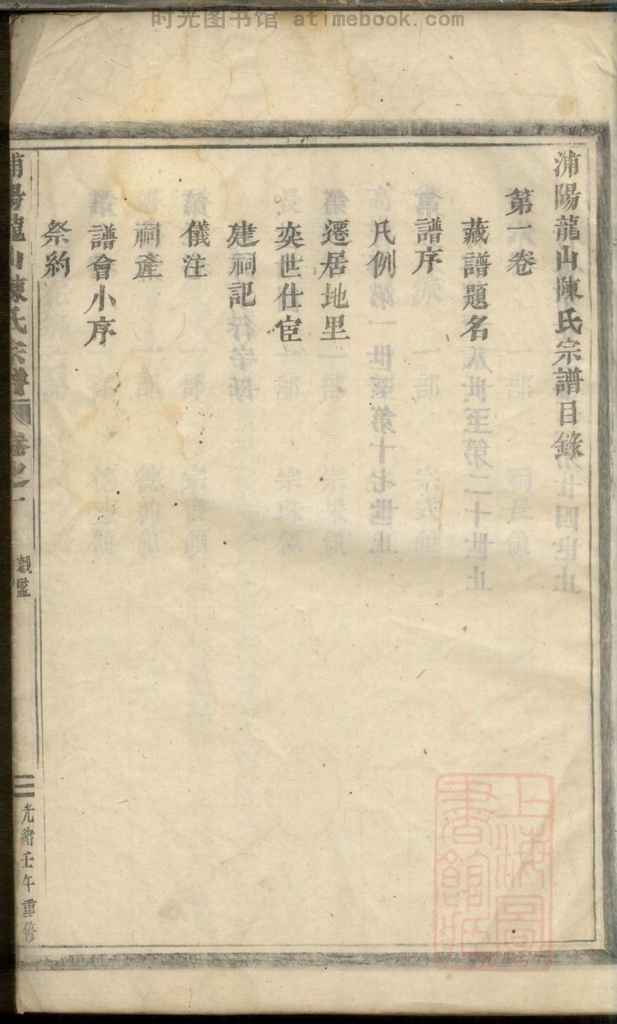 时光图书馆 atimebook.com
浦陽龍山陳氏宗譜目錄
第一卷
藏譜題名
譜序
凡例
遷居地里
奕世仕宦
建祠記
儀注
祠產
譜會小序
祭約
浦陽龍山陳氏宗譜 卷之一
光緒壬午重修
上海圖書館藏